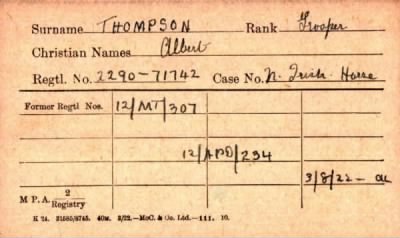 Surname THOMPSON Rank Trooper
Christian Names Albert
Regtl. No. 2290-71742 Case No. N. Irish. Horse
Former Regtl Nos. 12/MT/307
12/APD/234
3/8/22 -
M P A. 2/Registry
K 24. 31585/3745. 40M. 3/22.—McC. & Co. Ltd.—111. 10.